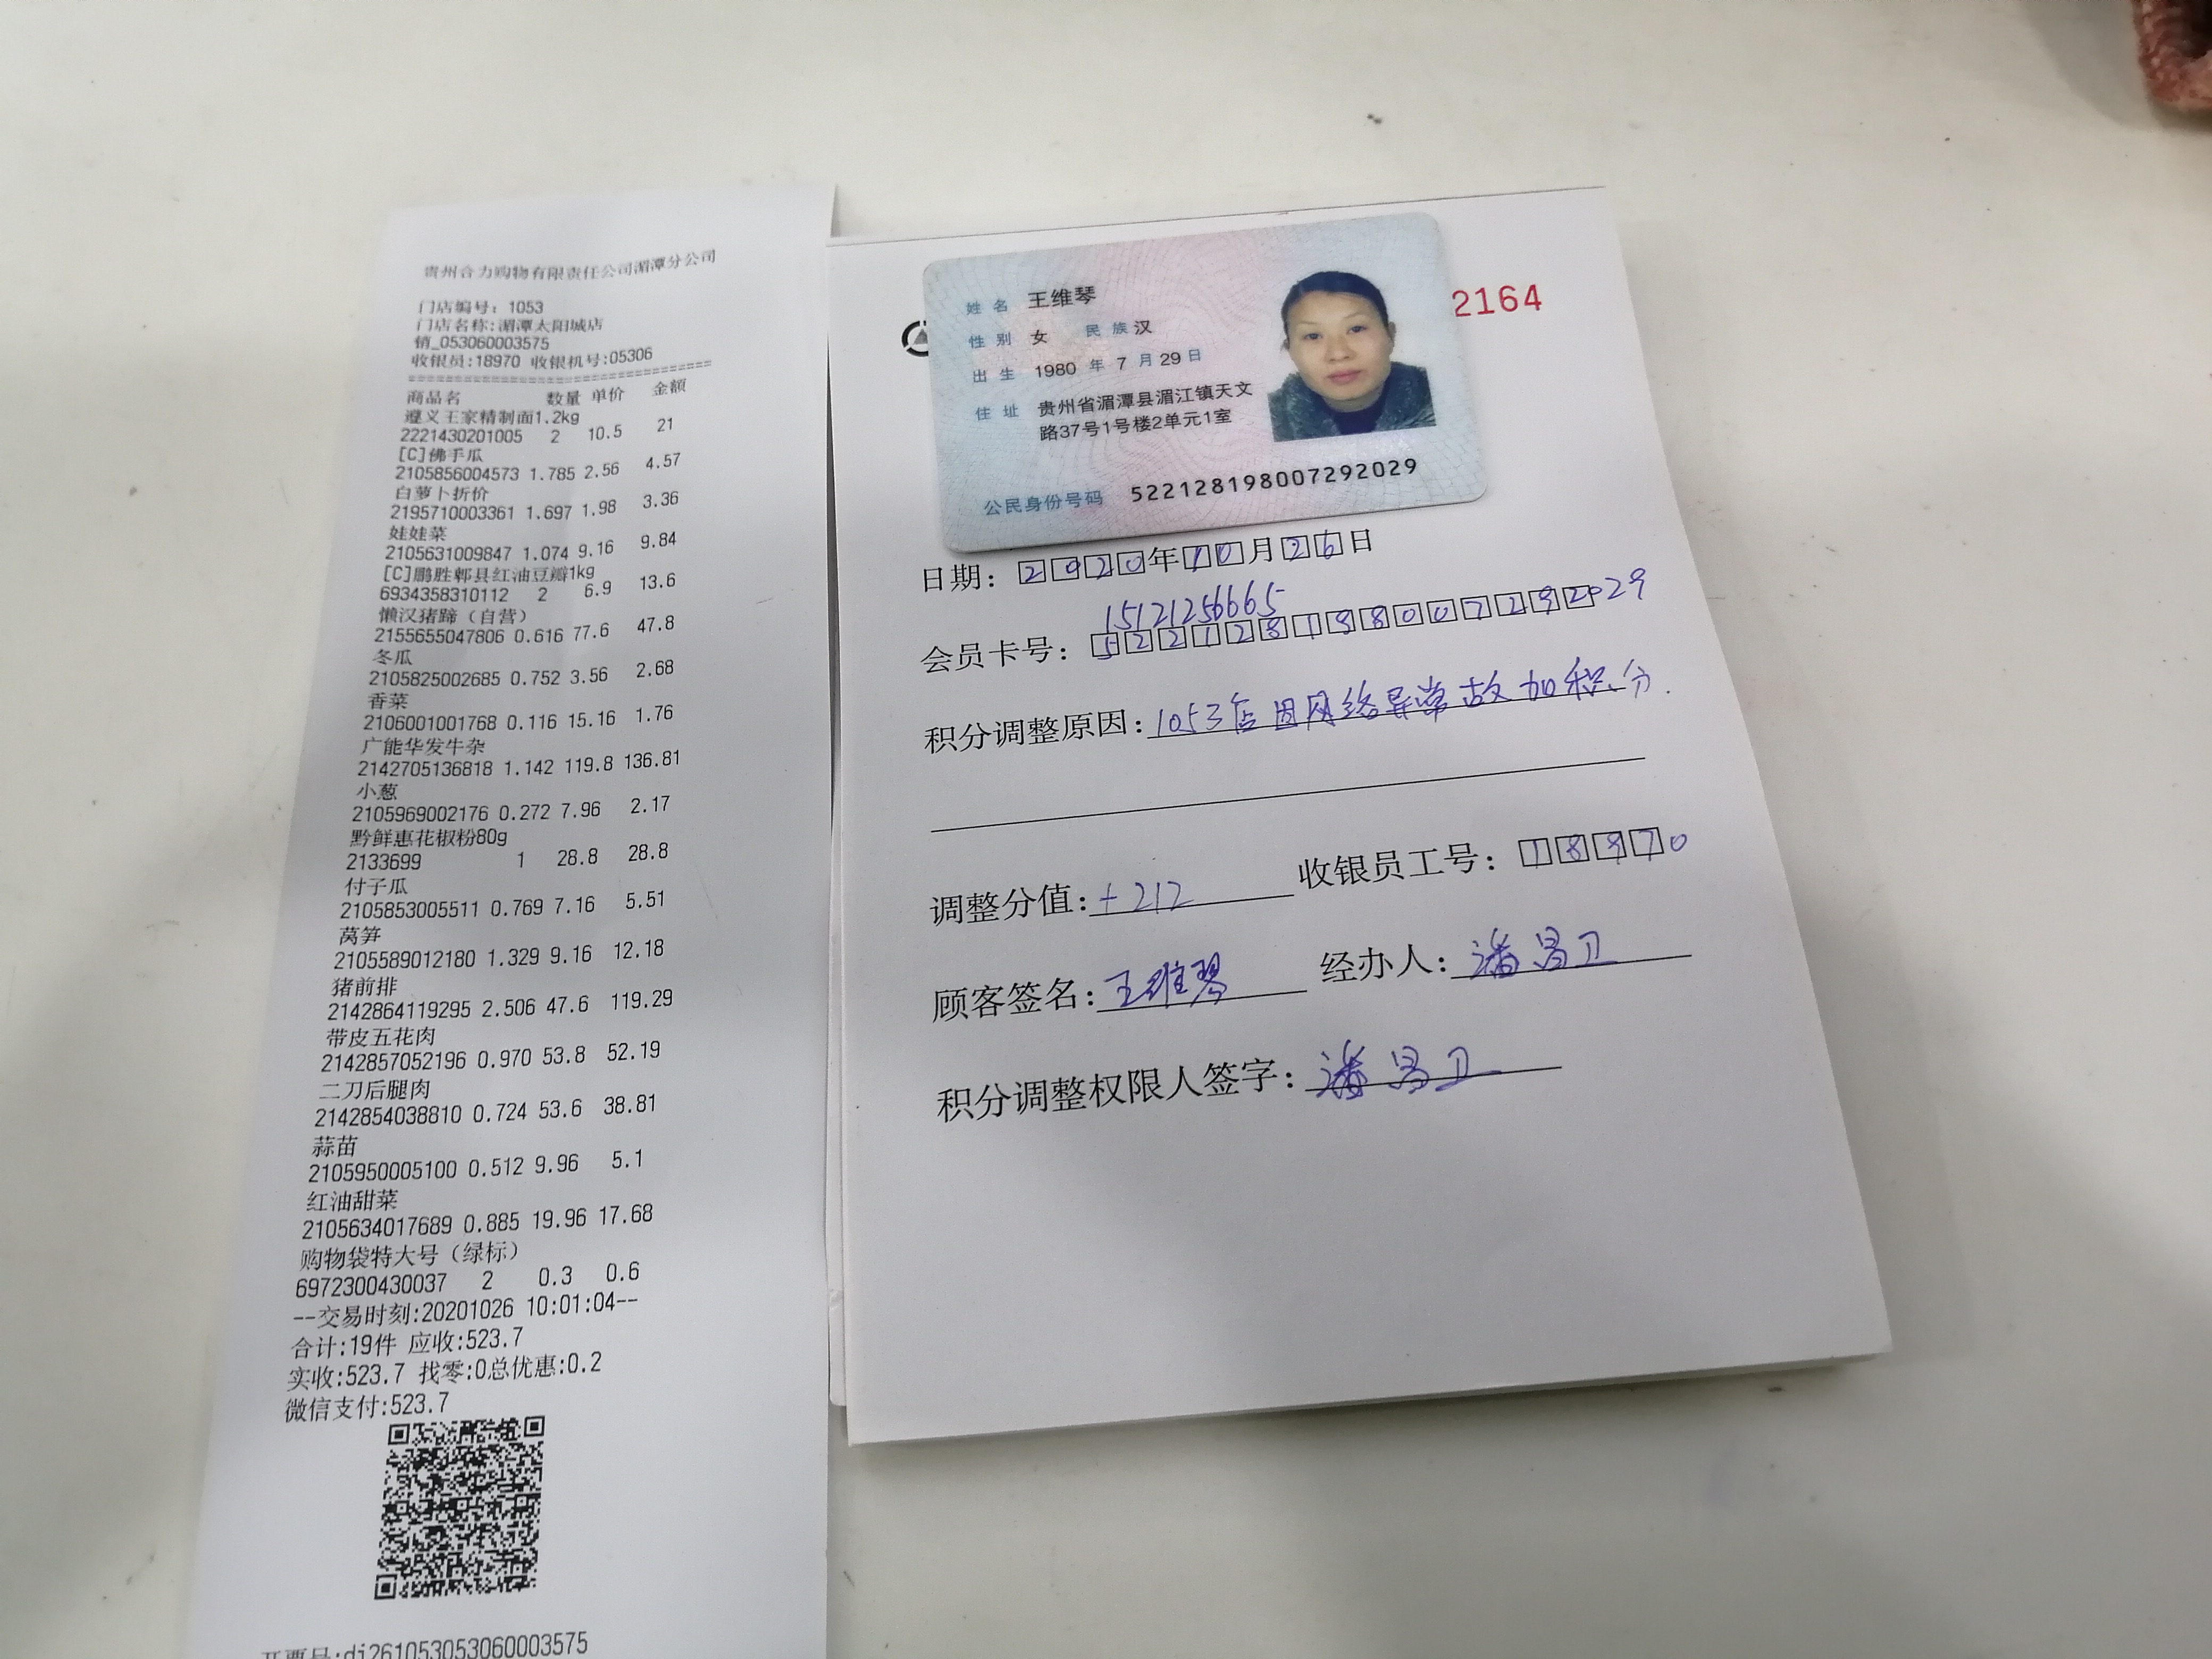 贵州合力购物有限责任公司湄潭分公司
门店编号：1053
门店名称:湄潭太阳城店
销_053060003575
收银员:18970 收银机号:05306
================================
商品名 数量 单价 金额
遵义王家精制面1.2kg
2221430201005 2 10.5 21
[C]佛手瓜
2105856004573 1.785 2.56 4.57
白萝卜折价
2195710003361 1.697 1.98 3.36
娃娃菜
2105631009847 1.074 9.16 9.84
[C]鹏胜郫县红油豆瓣1kg
6934358310112 2 6.9 13.6
懒汉猪蹄（自营）
2155655047806 0.616 77.6 47.8
冬瓜
2105825002685 0.752 3.56 2.68
香菜
2106001001768 0.116 15.16 1.76
广能华发牛杂
2142705136818 1.142 119.8 136.81
小葱
2105969002176 0.272 7.96 2.17
黔鲜惠花椒粉80g
2133699 1 28.8 28.8
付子瓜
2105853005511 0.769 7.16 5.51
莴笋
2105589012180 1.329 9.16 12.18
猪前排
2142864119295 2.506 47.6 119.29
带皮五花肉
2142857052196 0.970 53.8 52.19
二刀后腿肉
2142854038810 0.724 53.6 38.81
蒜苗
2105950005100 0.512 9.96 5.1
红油甜菜
2105634017689 0.885 19.96 17.68
购物袋特大号（绿标）
6972300430037 2 0.3 0.6
--交易时刻:20201026 10:01:04--
合计:19件 应收:523.7
实收:523.7 找零:0总优惠:0.2
微信支付:523.7
开票号:dj261053053060003575
2164
姓名 王维琴
性别 女 民族 汉
出生 1980 年 7 月 29 日
住址 贵州省湄潭县湄江镇天文
路37号1号楼2单元1室
公民身份号码 522128198007292029
日期：2020年10月26日
15121256665
会员卡号：522128198007292029
积分调整原因:1053店因网络异常故加积分.
调整分值:+212 收银员工号：18970
顾客签名:王维琴 经办人:潘昌卫
积分调整权限人签字:潘昌卫